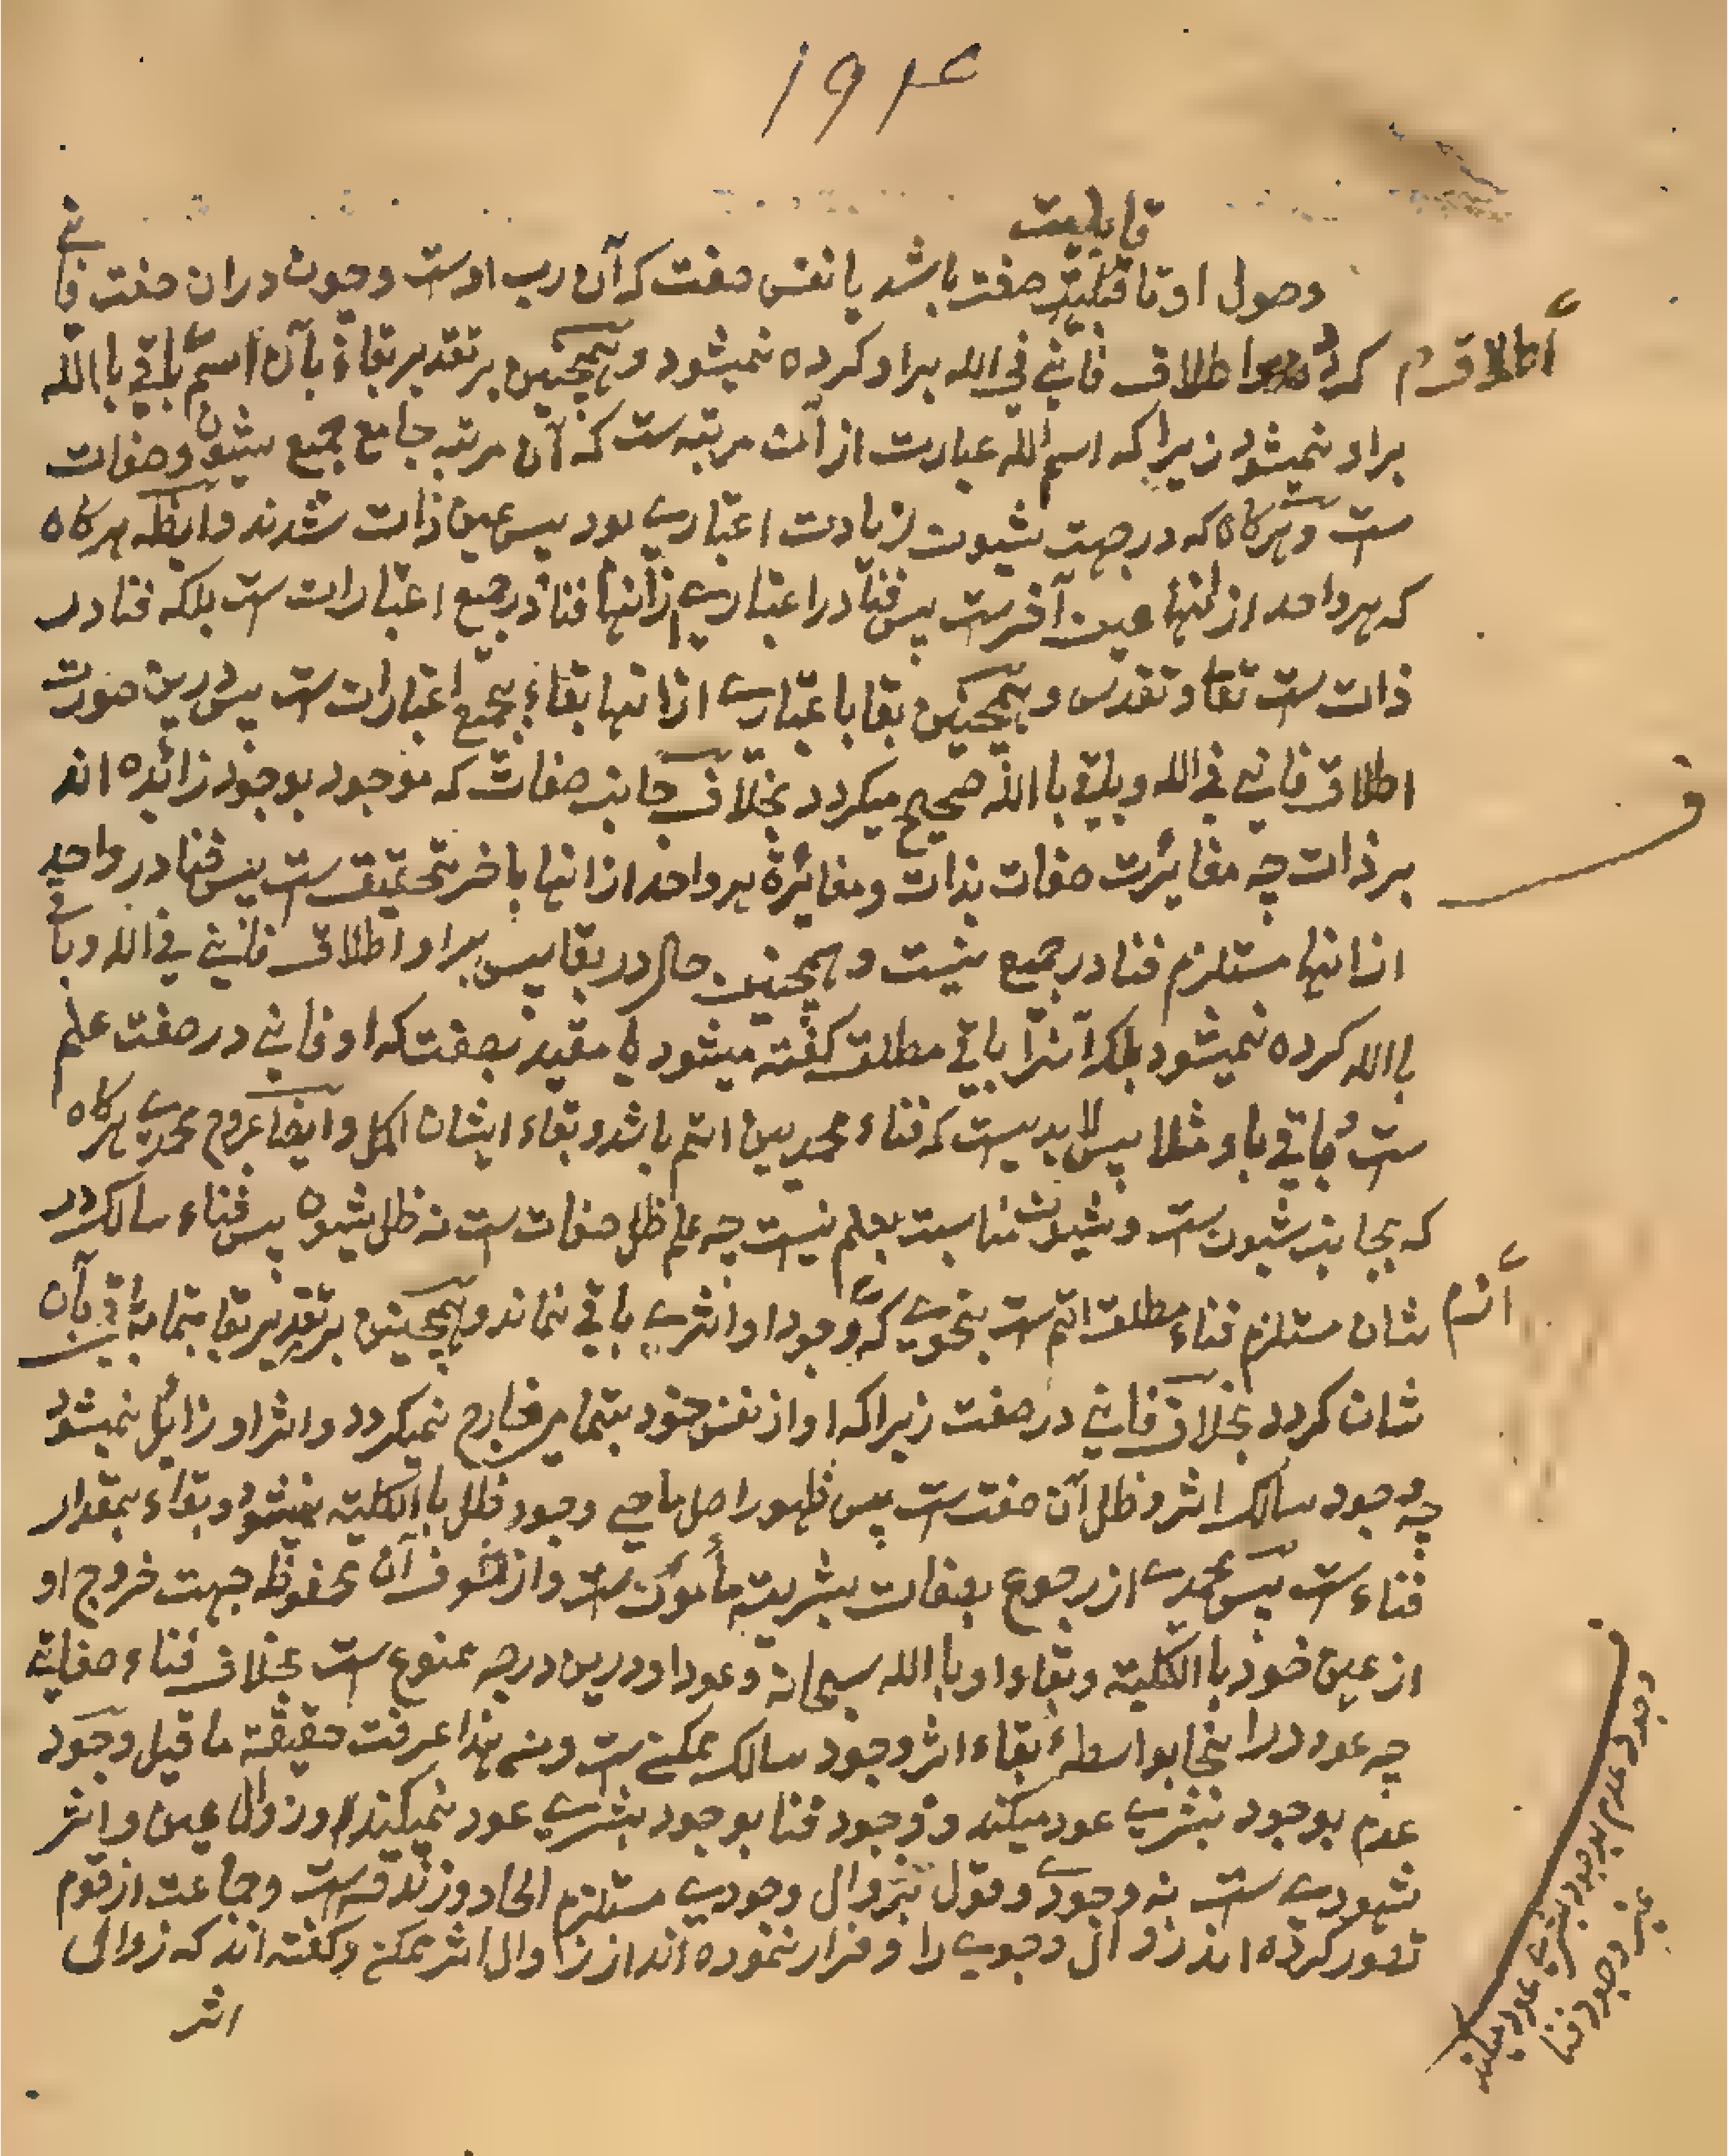 ۱۹۴
قابلیت
وصول او تا قابلیت صفت باشد یا نفس صفت که آن رب اوست و چون در ان صفت فانی
کردد اطلاق فانی فی الله براو کرده نمیشود و همچنین بر تقدیر بقاء بآن اسم باقی باالله
اطلاقم
براو نمیشود زیرا که اسم الله عبارت از آن مرتبه ست که آن مرتبه جامع جمیع شیون و صفات
ست و هرکاه که در جهت شیون زیادت اعتباری بود پس عین ذات شدند و ایضا هرکاه
که هر واحد از انها عین آخرست پس فنا در اعتباری از انها فنا در جمیع اعتبارات ست بلکه فنا در
ذات ست تعا و تقدس و همچنین بقا باعتباری از انها بقاء بجمیع اعتبارات ست پس درین صورت
اطلاق فانی فی الله و باقی باالله صحیح میکردد بخلاف جانب صفات که موجود بوجود زائده اند
ف
بر ذات چه مغائرت صفات بذات و مغائرة هر واحد از انها باخر تحقیق ست پس فنا در واحد
از انها مستلزم فنا در جمیع نیست و همچنین حال در بقا پس براو اطلاق فانی فی الله و باقی
باالله کرده نمیشود بلکه آنرا باقی مطلق کفته میشود یا مقید بصفت که او فانی در صفت علم
ست و باقی باو مثلا پس لابدیست که فناء محمدیین اتم باشد و بقاء ایشان اکمل و ایضا عروج محمدی هرکاه
که بجانب شیون ست و شیون مناسبت بعلم نیست چه علم ظل صفات ست نه ظل شیون پس فناء سالک در
شان مستلزم فناء مطلق اتم ست بنحوی که وجود او اثری باقی نماند و همچنین بر تقدیر بقا بتمامه باقی بآن
اثرم
شان کردد بخلاف فانی در صفت زیرا که او از نفس خود بتمامه خارج نمیکردد و اثر او زایل نمیشود
چه وجود سالک اثر و ظل آن صفت ست پس ظهور اصل ماحی وجود ظل باالکلیه نمیشود و بقاء بمقدار
فناء ست پس محمدی از رجوع بصفات بشریت مأمون ست و از خوف آن محفوظ جهت خروج او
از عین خود باالکلیة و بقاء او باالله سبحانه و عود او درین درجه ممنوع ست بخلاف فناء صفاتیه
چه عود در اینجا بواسطۀ بقاء اثر وجود سالک ممکن ست و من هذا عرفت حقیقة ما قیل وجود
عدم بوجود بشری عود میکند و وجود فنا بوجود بشری عود نمیکند و زوال عین و اثر
شهودی ست نه وجودی و قول بزوال وجودی مستلزم الحاد و زندقه ست و جماعت از قوم
تصور کرده اند زوال وجودی را و فرار نموده اند از زوال اثر ممکن و کفته اند که زوالی
اثر
وجود عدم بوجود بشری عود میکند
غیر وجود فنا